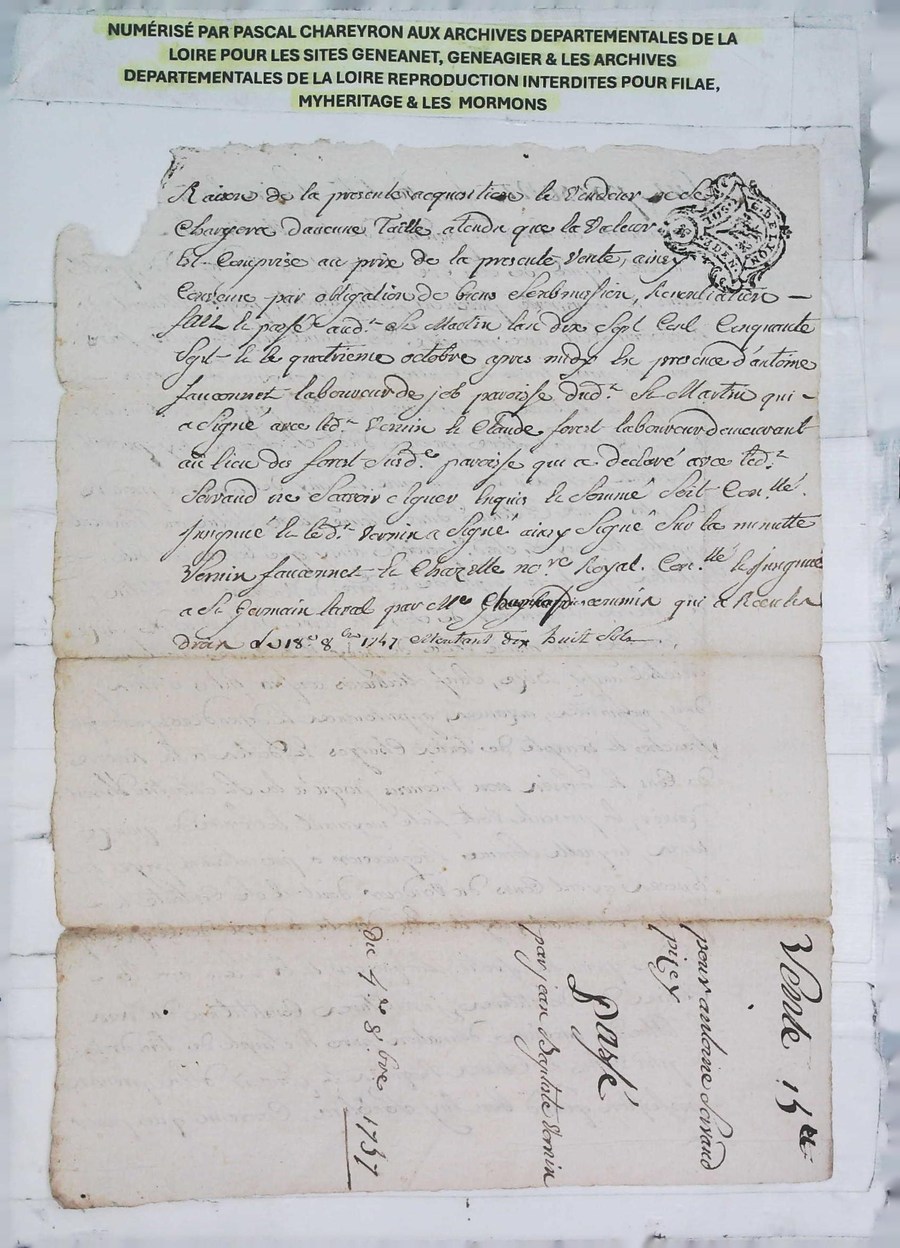 NUMÉRISÉ PAR PASCAL CHAREYRON AUX ARCHIVES DEPARTEMENTALES DE LA
LOIRE POUR LES SITES GENEANET, GENEAGIER & LES ARCHIVES
DEPARTEMENTALES DE LA LOIRE REPRODUCTION INTERDITES POUR FILAE,
MYHERITAGE & LES MORMONS
Raison de la presente acquisition le Vendeur ne se
Chargera daucune Taille atendu que la Valeur
Est Comprise au prix de la presente Vente, ainsy
Convenu par obligation de biens Soubmission, Renontiation
fait & passé aud.t St Martin lan dix Sept Cent Cinquante
Sept & le quatrieme octobre apres midy En presence d'antoine
fauconnet laboureur de job paroisse dud.t St Martin qui
a Signé avec led.t Vernin & Claude forest laboureur demeurant
au lieu des forest Susd.e paroisse qui a declaré avec led.t
Servaud ne Scavoir Signer Enquis & Sommé Soit Con.llé
Insignué & led.t Vernin a Signé ainsy Signé Sur la minutte
Vernin fauconnet & Chazelle no.re Royal. Con.llé & Insignué
a St Germain laval par Me qui a Receu
le 18.e 8.bre 1757 dix huit Sols
Vente
pour antoine Servaud
Passé
par jean Baptiste Vernin
du 4.e 8.bre 1757